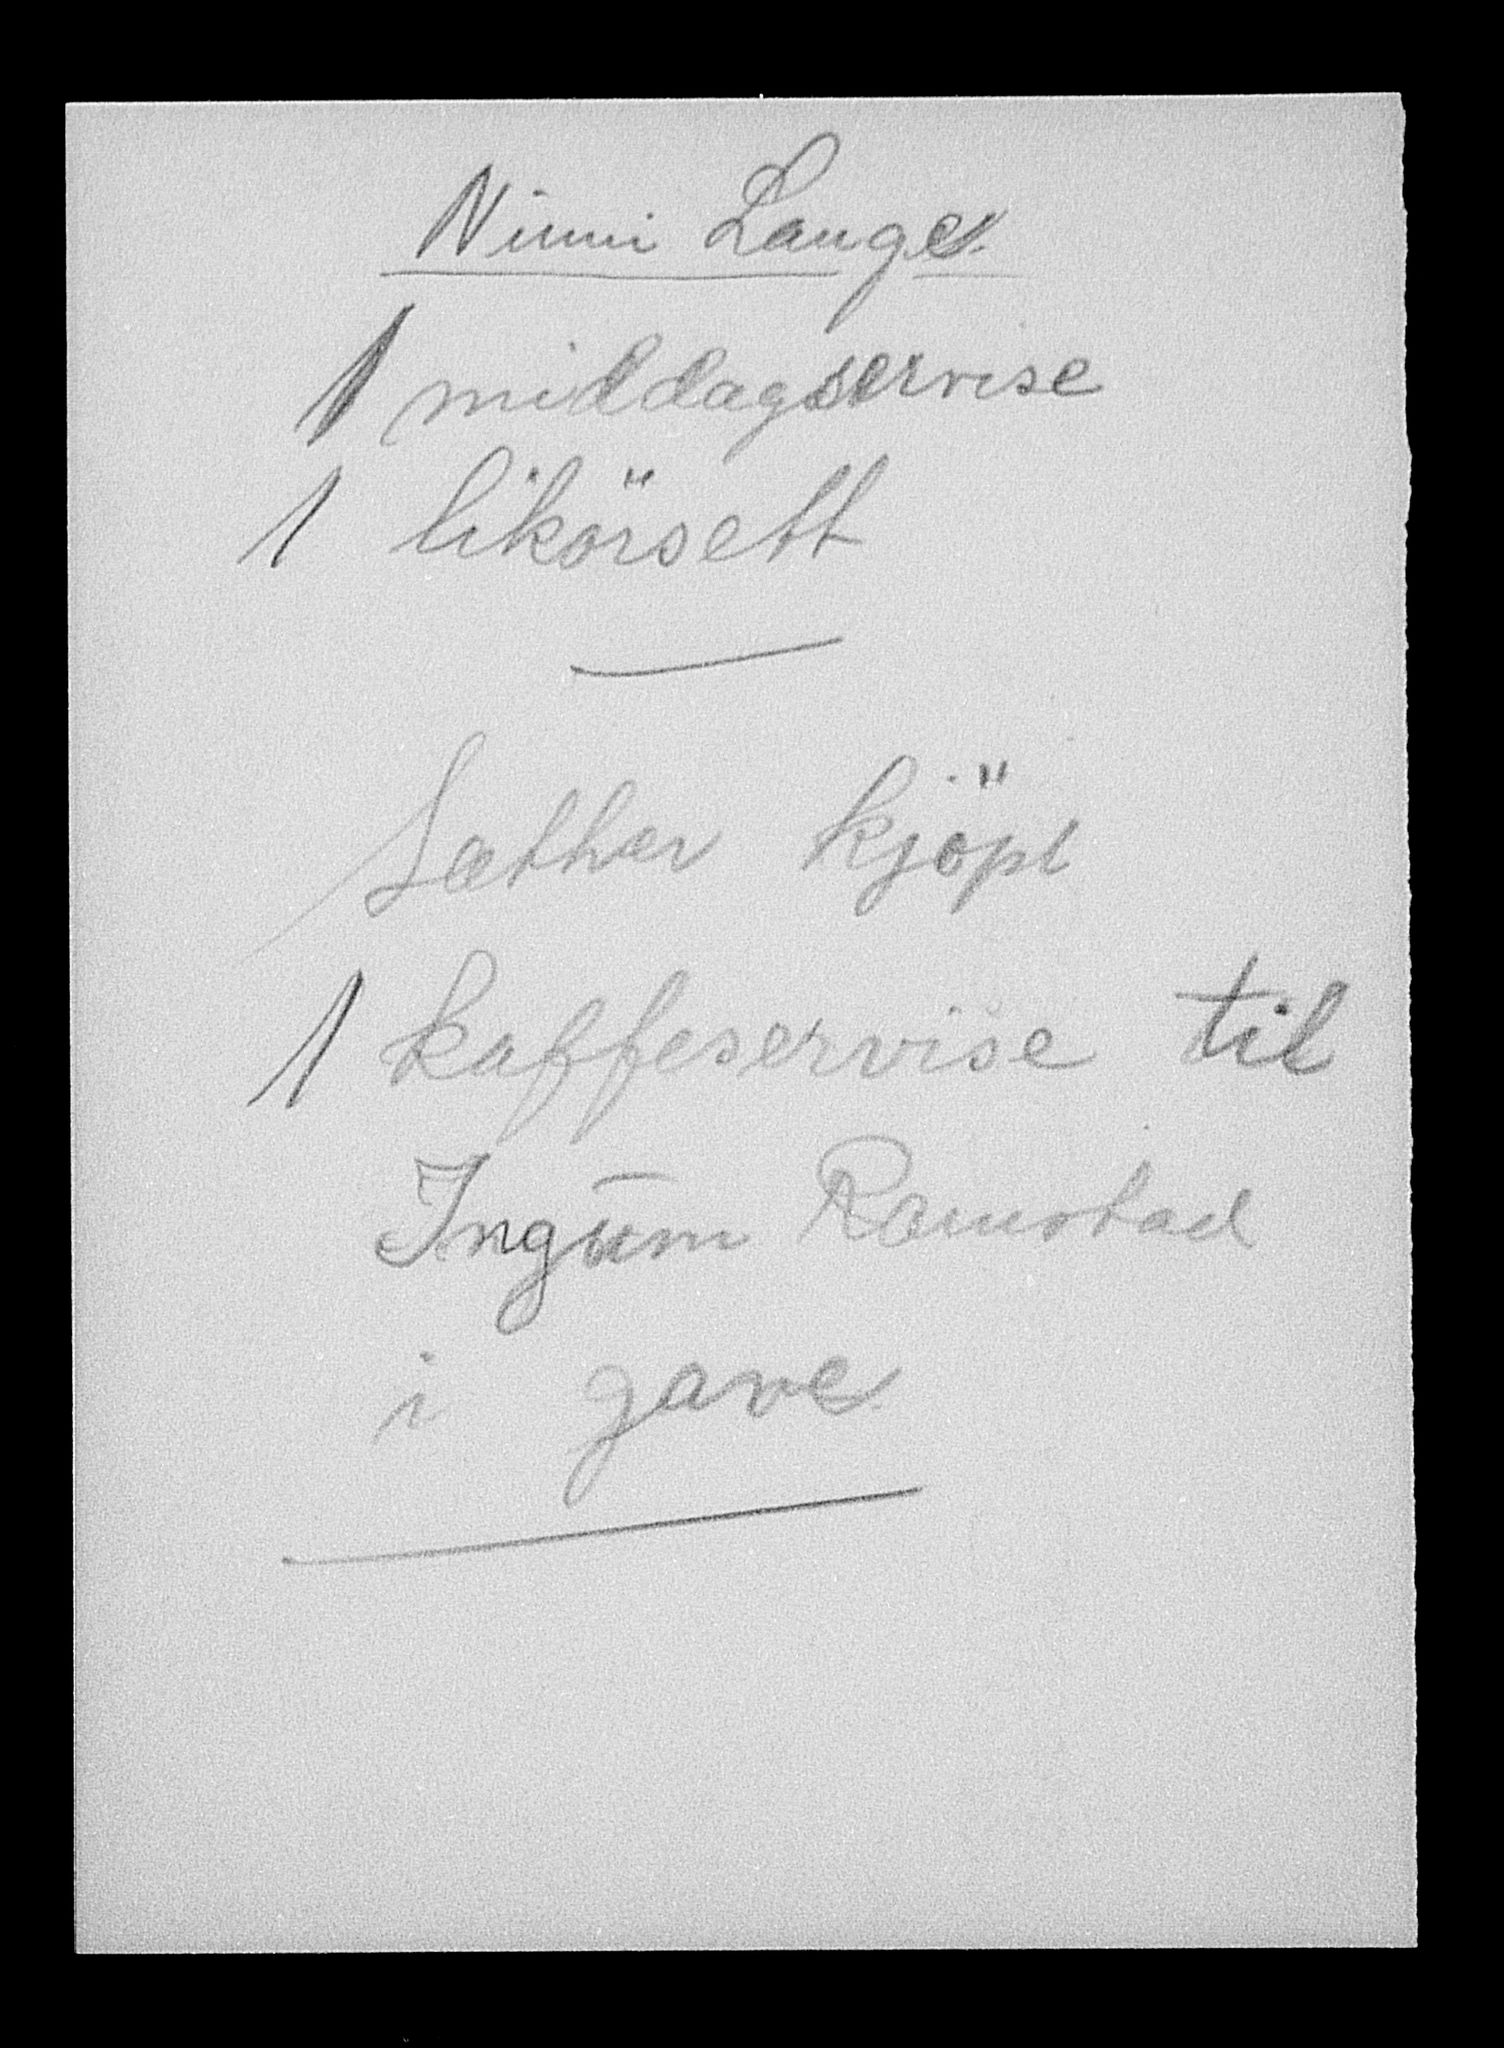 Ninni Lange
1 middagservise
1 likörsett
Sæther kjöpt
1 kaffeservise til
Ramstad
i gave